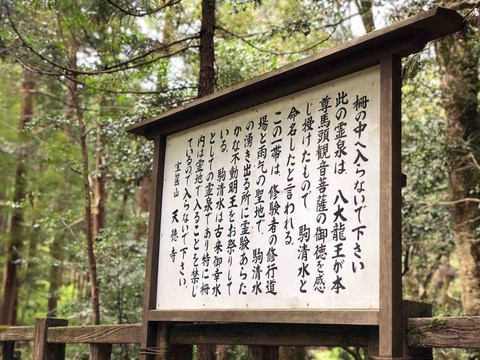 柵の中へ入らないで下さい
此の霊泉は、八大龍王が本
尊馬頭観音菩薩の御徳を感
じ授けたもので、駒清水と
命名したと言われる。
この一帯は、修験者の修行道
場と雨乞の聖地で、駒清水
の湧き出る所に霊験あらた
かな不動明王をお祭りして
いる。駒清水は古来御幸水
としての霊泉であり特に柵
内は霊地で入ることを禁じ
ているので入らないで下さい。
宝医山 天徳寺